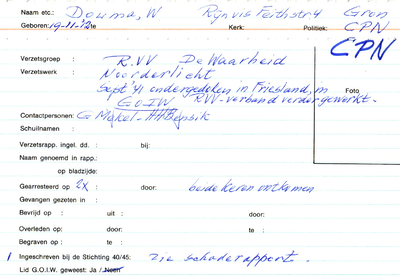 Naam etc.: Douma, W Rijnvis Feithstr 4 Gron
Geboren: 19-11-12 te Kerk: Politiek: CPN
CPN
Verzetsgroep : R.VV De Waarheid
Verzetswerk : Noorderlicht
Sept '41 ondergedoken in Friesland, in
G.O.I.W R.VV-verband verder gewerkt.
Foto
Contactpersonen: G Meijkel - HHBensik
Schuilnaam :
Verzetsrapp. ingel. dd. : bij:
Naam genoemd in rapp.:
op bladzijde:
Gearresteerd op 2x : door: beide keren ontkomen
Gevangen gezeten in :
Bevrijd op : uit : door:
Overleden op: door: te :
Begraven op : te :
1 Ingeschreven bij de Stichting 40/45: zie schaderapport.
Lid G.O.I.W. geweest: Ja / Neen